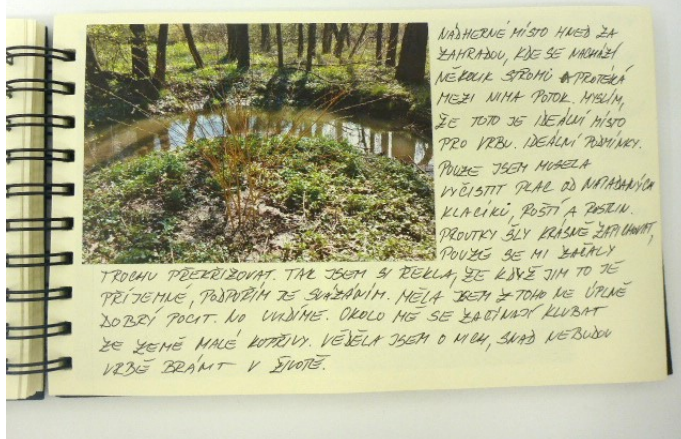 NÁDHERNÉ MÍSTO HNED ZA
ZAHRADOU, KDE SE NACHÁZÍ
NĚKOLIK STROMŮ A PROTÉKÁ
MEZI NIMA POTOK. MYSLÍM,
ŽE TOTO JE IDEÁLNÍ MÍSTO
PRO VRBU. IDEÁLNÍ PODMÍNKY.
POUZE JSEM MUSELA
VYČISTIT PLAC OD NAPADANÝCH
KLACÍKŮ, ROŠTÍ A ROSTLIN.
PROUTKY ŠLY KRÁSNĚ ZAPICHOVAT,
POUZE SE MI ZAČALY
TROCHU PŘEKŘIŽOVAT. TAK JSEM SI ŘEKLA, ŽE KDYŽ JIM TO JE
PŘÍJEMNÉ, PODPOŘÍM JE SVÁZÁNÍM. MĚLA JSEM Z TOHO NE ÚPLNĚ
DOBRÝ POCIT. NO UVIDÍME. OKOLO MĚ SE ZAČÍNAJÍ KLUBAT
ZE ZEMĚ MALÉ KOPŘIVY. VĚDĚLA JSEM O NICH, SNAD NEBUDOU
VRBĚ BRÁNIT V ŽIVOTĚ.